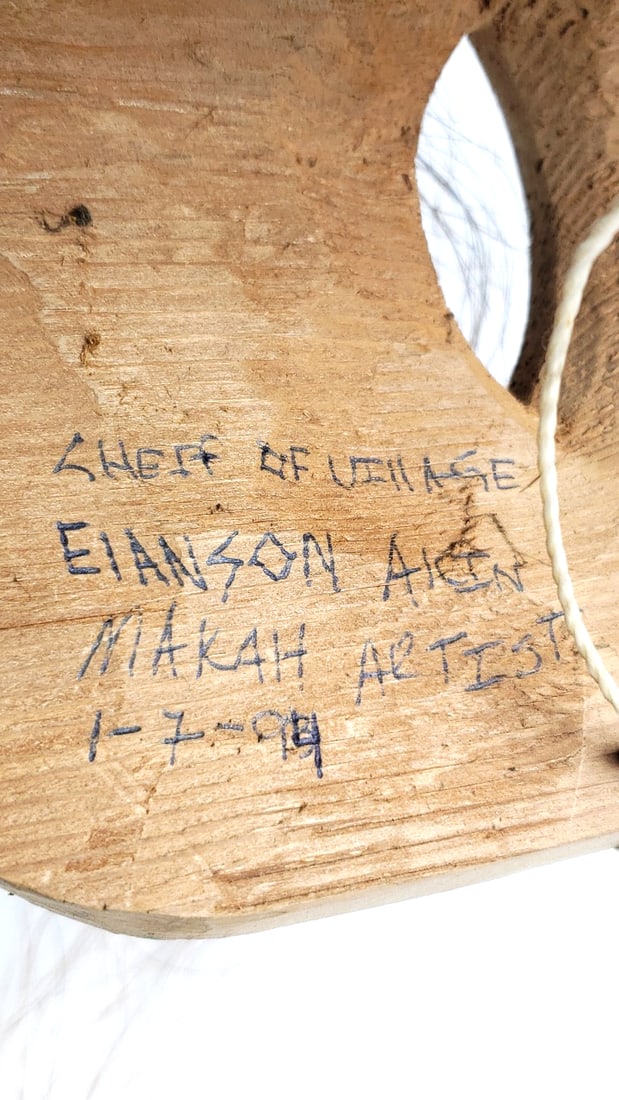 CHEIF OF VIllAGE
EIANSON AKIN
MAKAH ARTIST
1-7-94